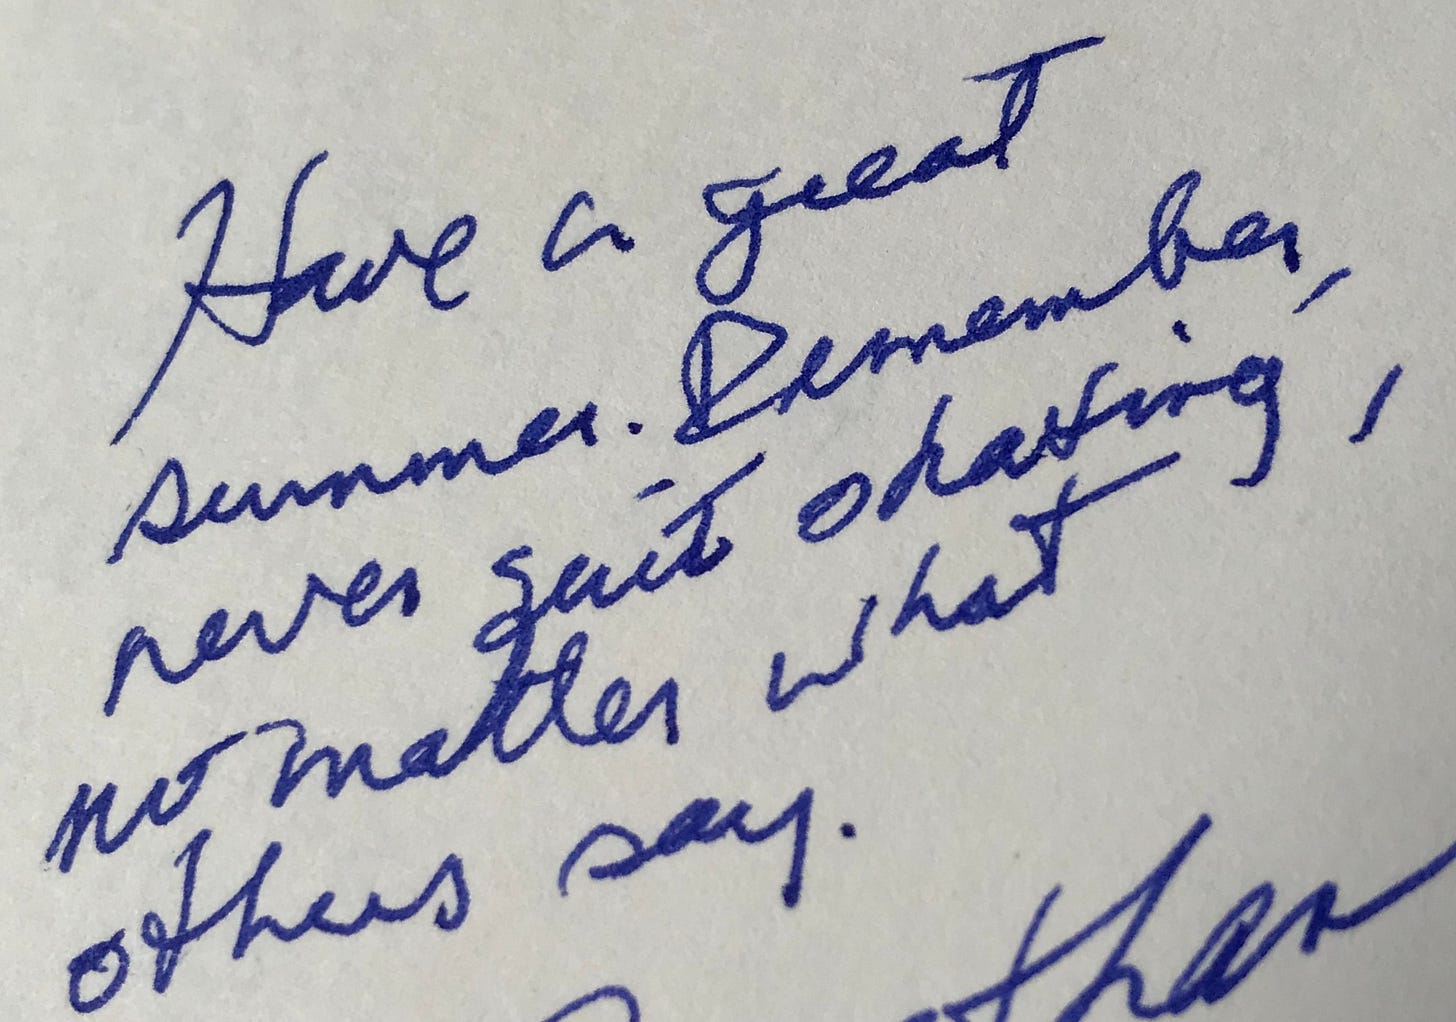 Have a great
summer. Remember,
never quit skating,
no matter what
others say.